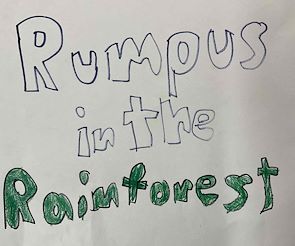 Rumpus
in the
Rainforest